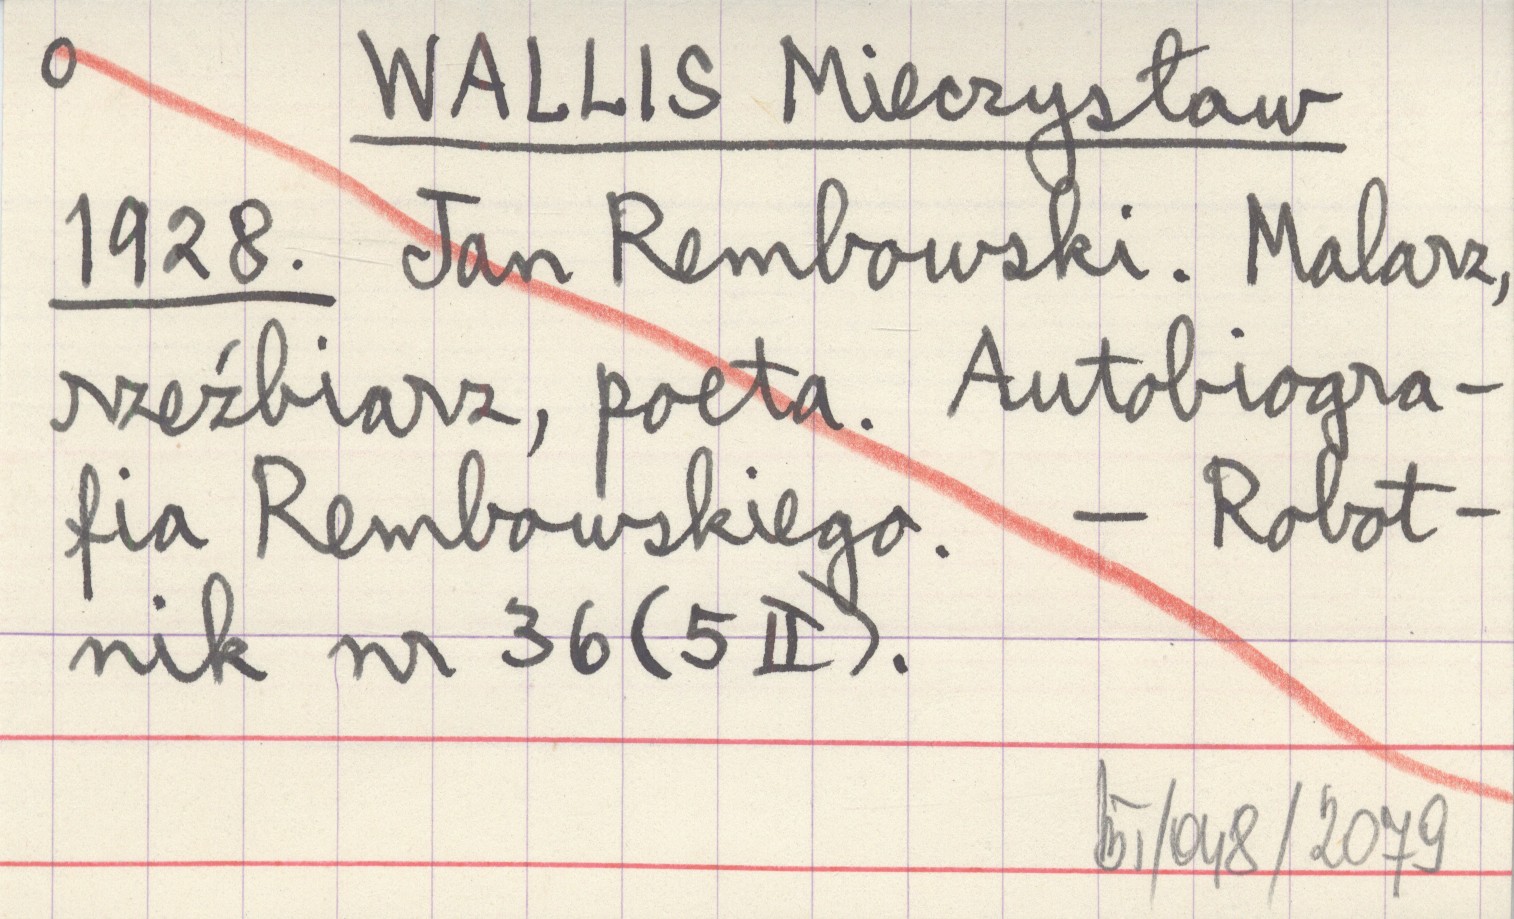 o WALLIS Mieczysław
1928. Jan Rembowski. Malarz,
rzeźbiarz, poeta. Autobiogra-
fia Rembowskiego. – Robot-
nik nr 36 (5 II).
/048/2079